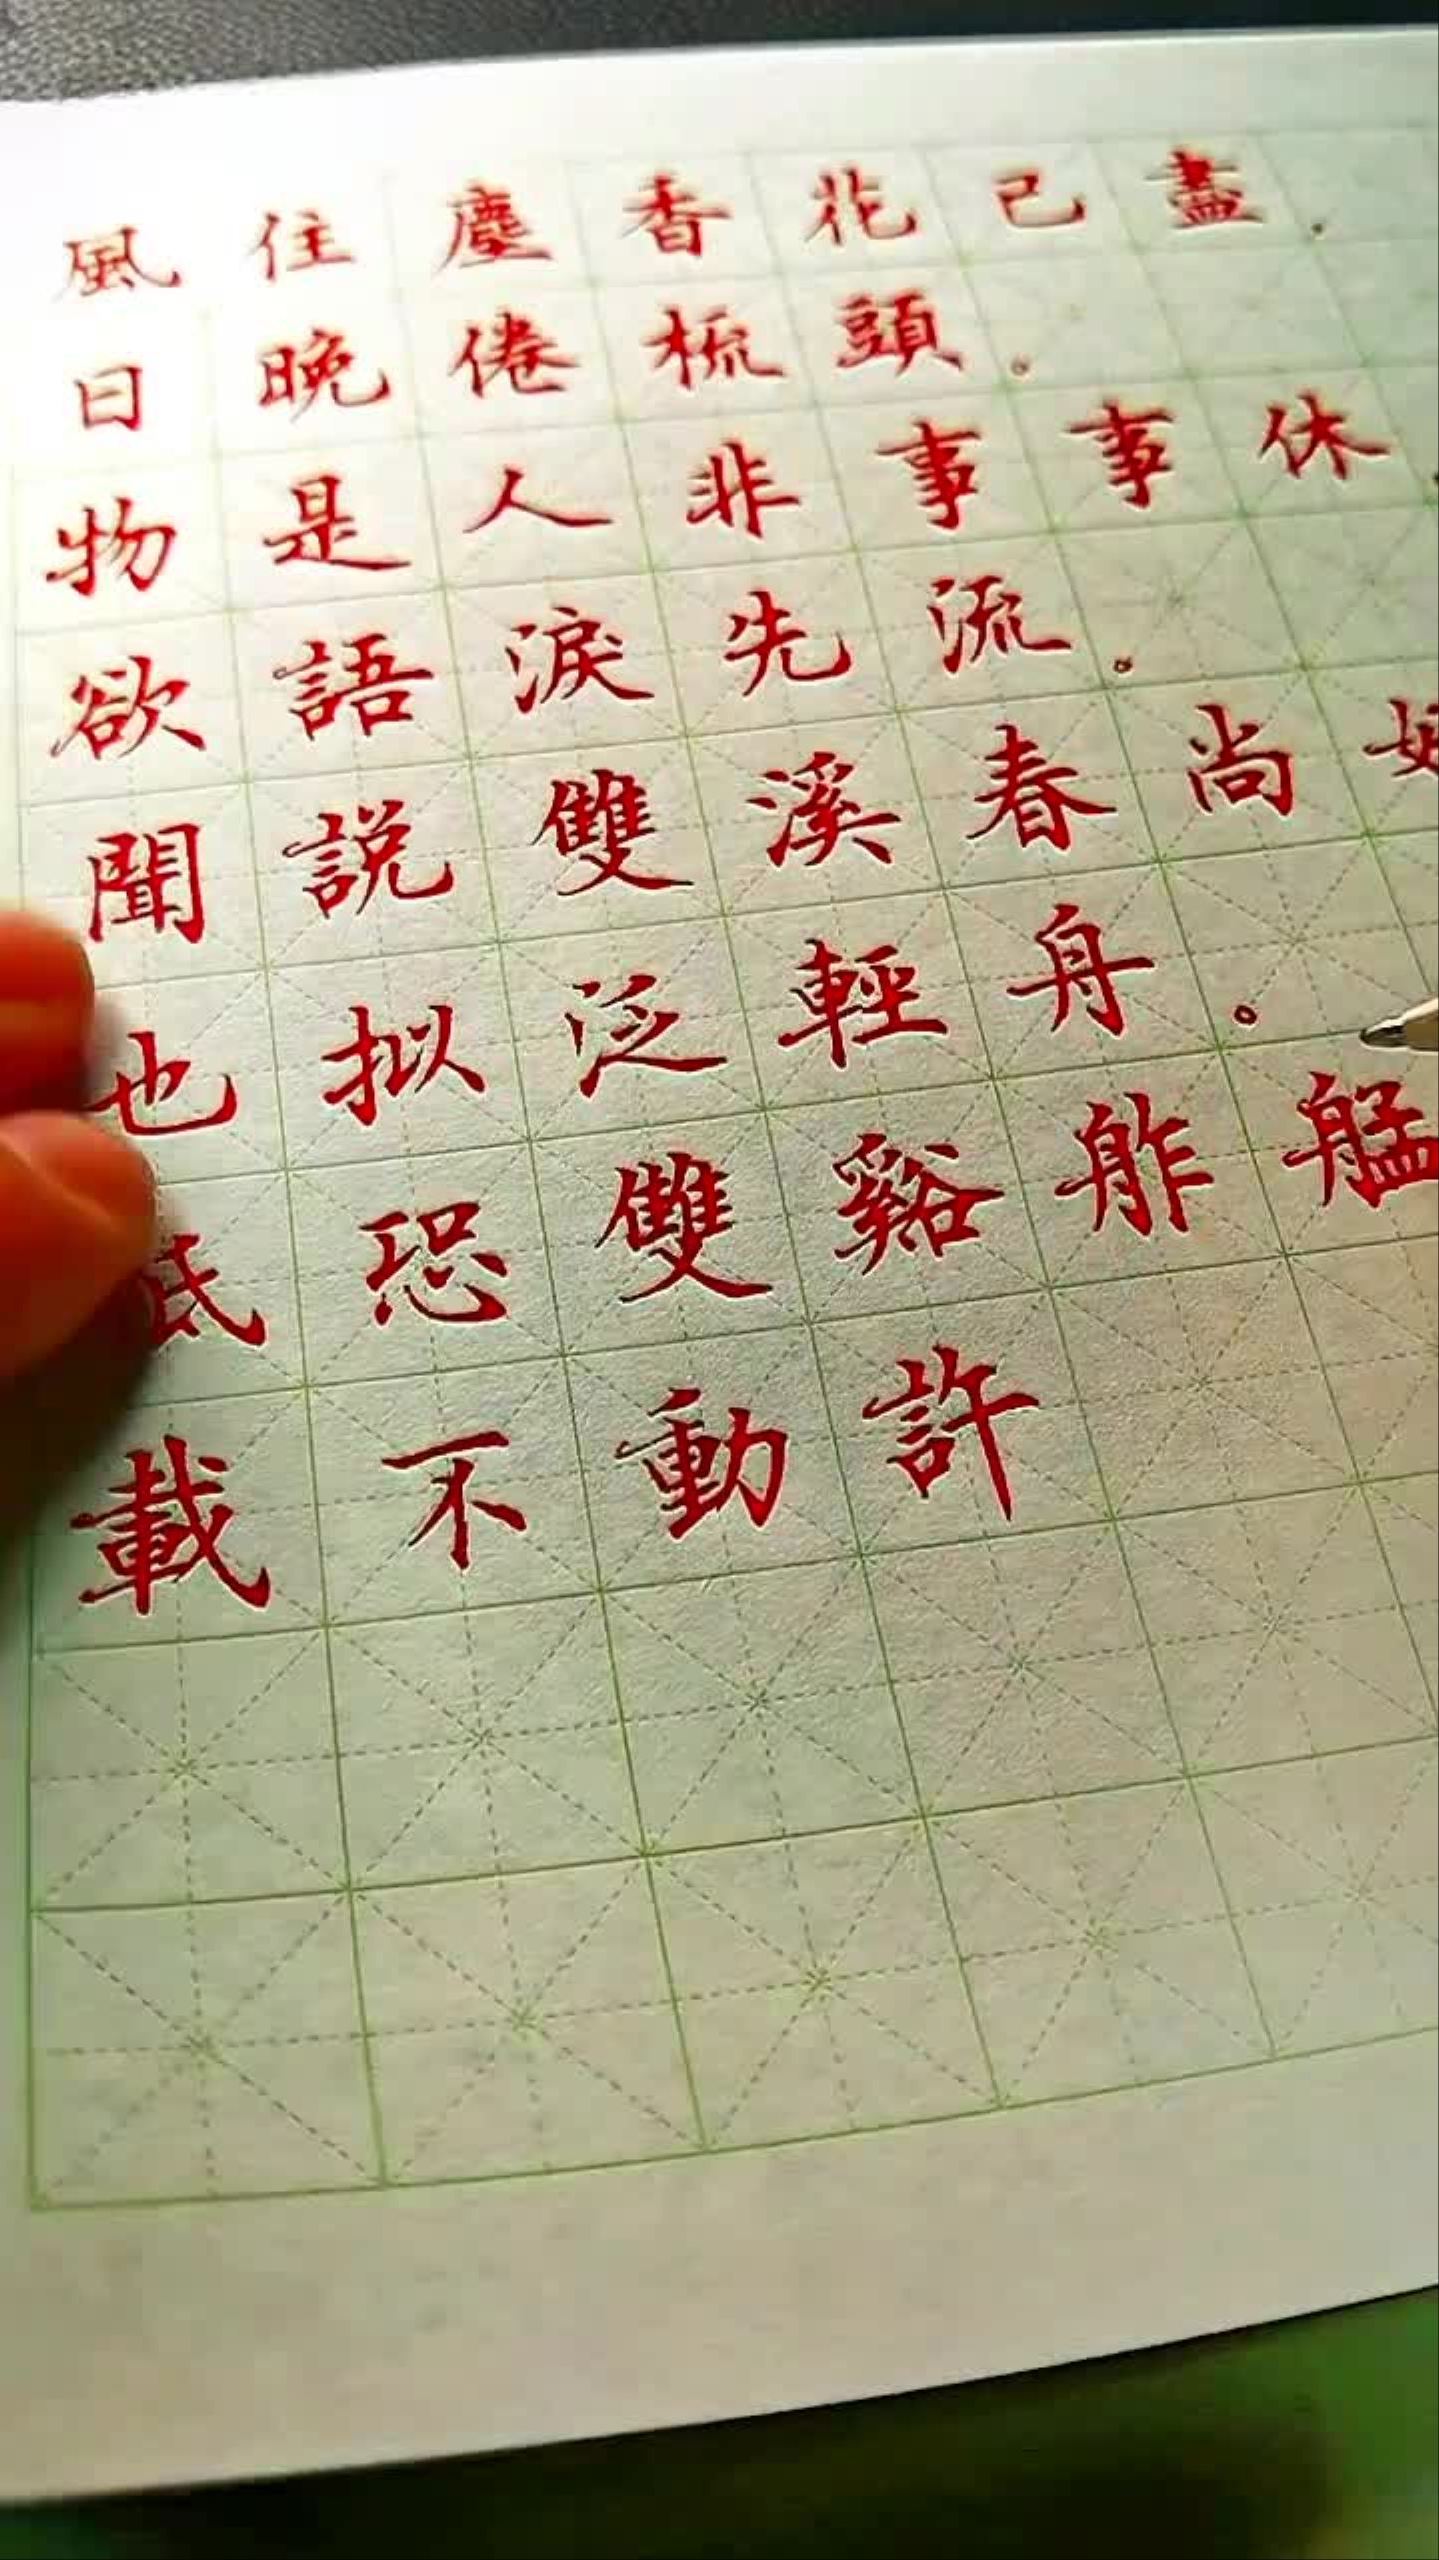 風住塵香花已盡。
日晚倦梳頭。
物是人非事事休
欲語淚先流。
聞說雙溪春尚好
也拟泛輕舟。
恐雙谿舴艋
載不動許